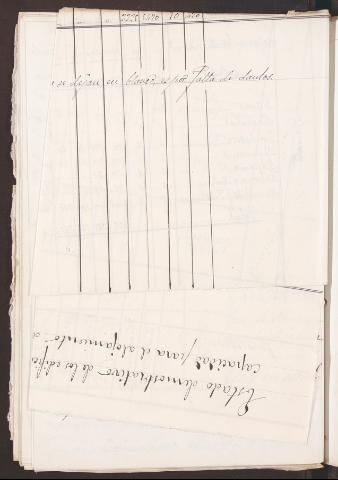 " " 2225 3420 10 420
se dejan en blanco, es por falta de dactos.
Estado demostrativo de los edific
capacidad para el alojamiento d